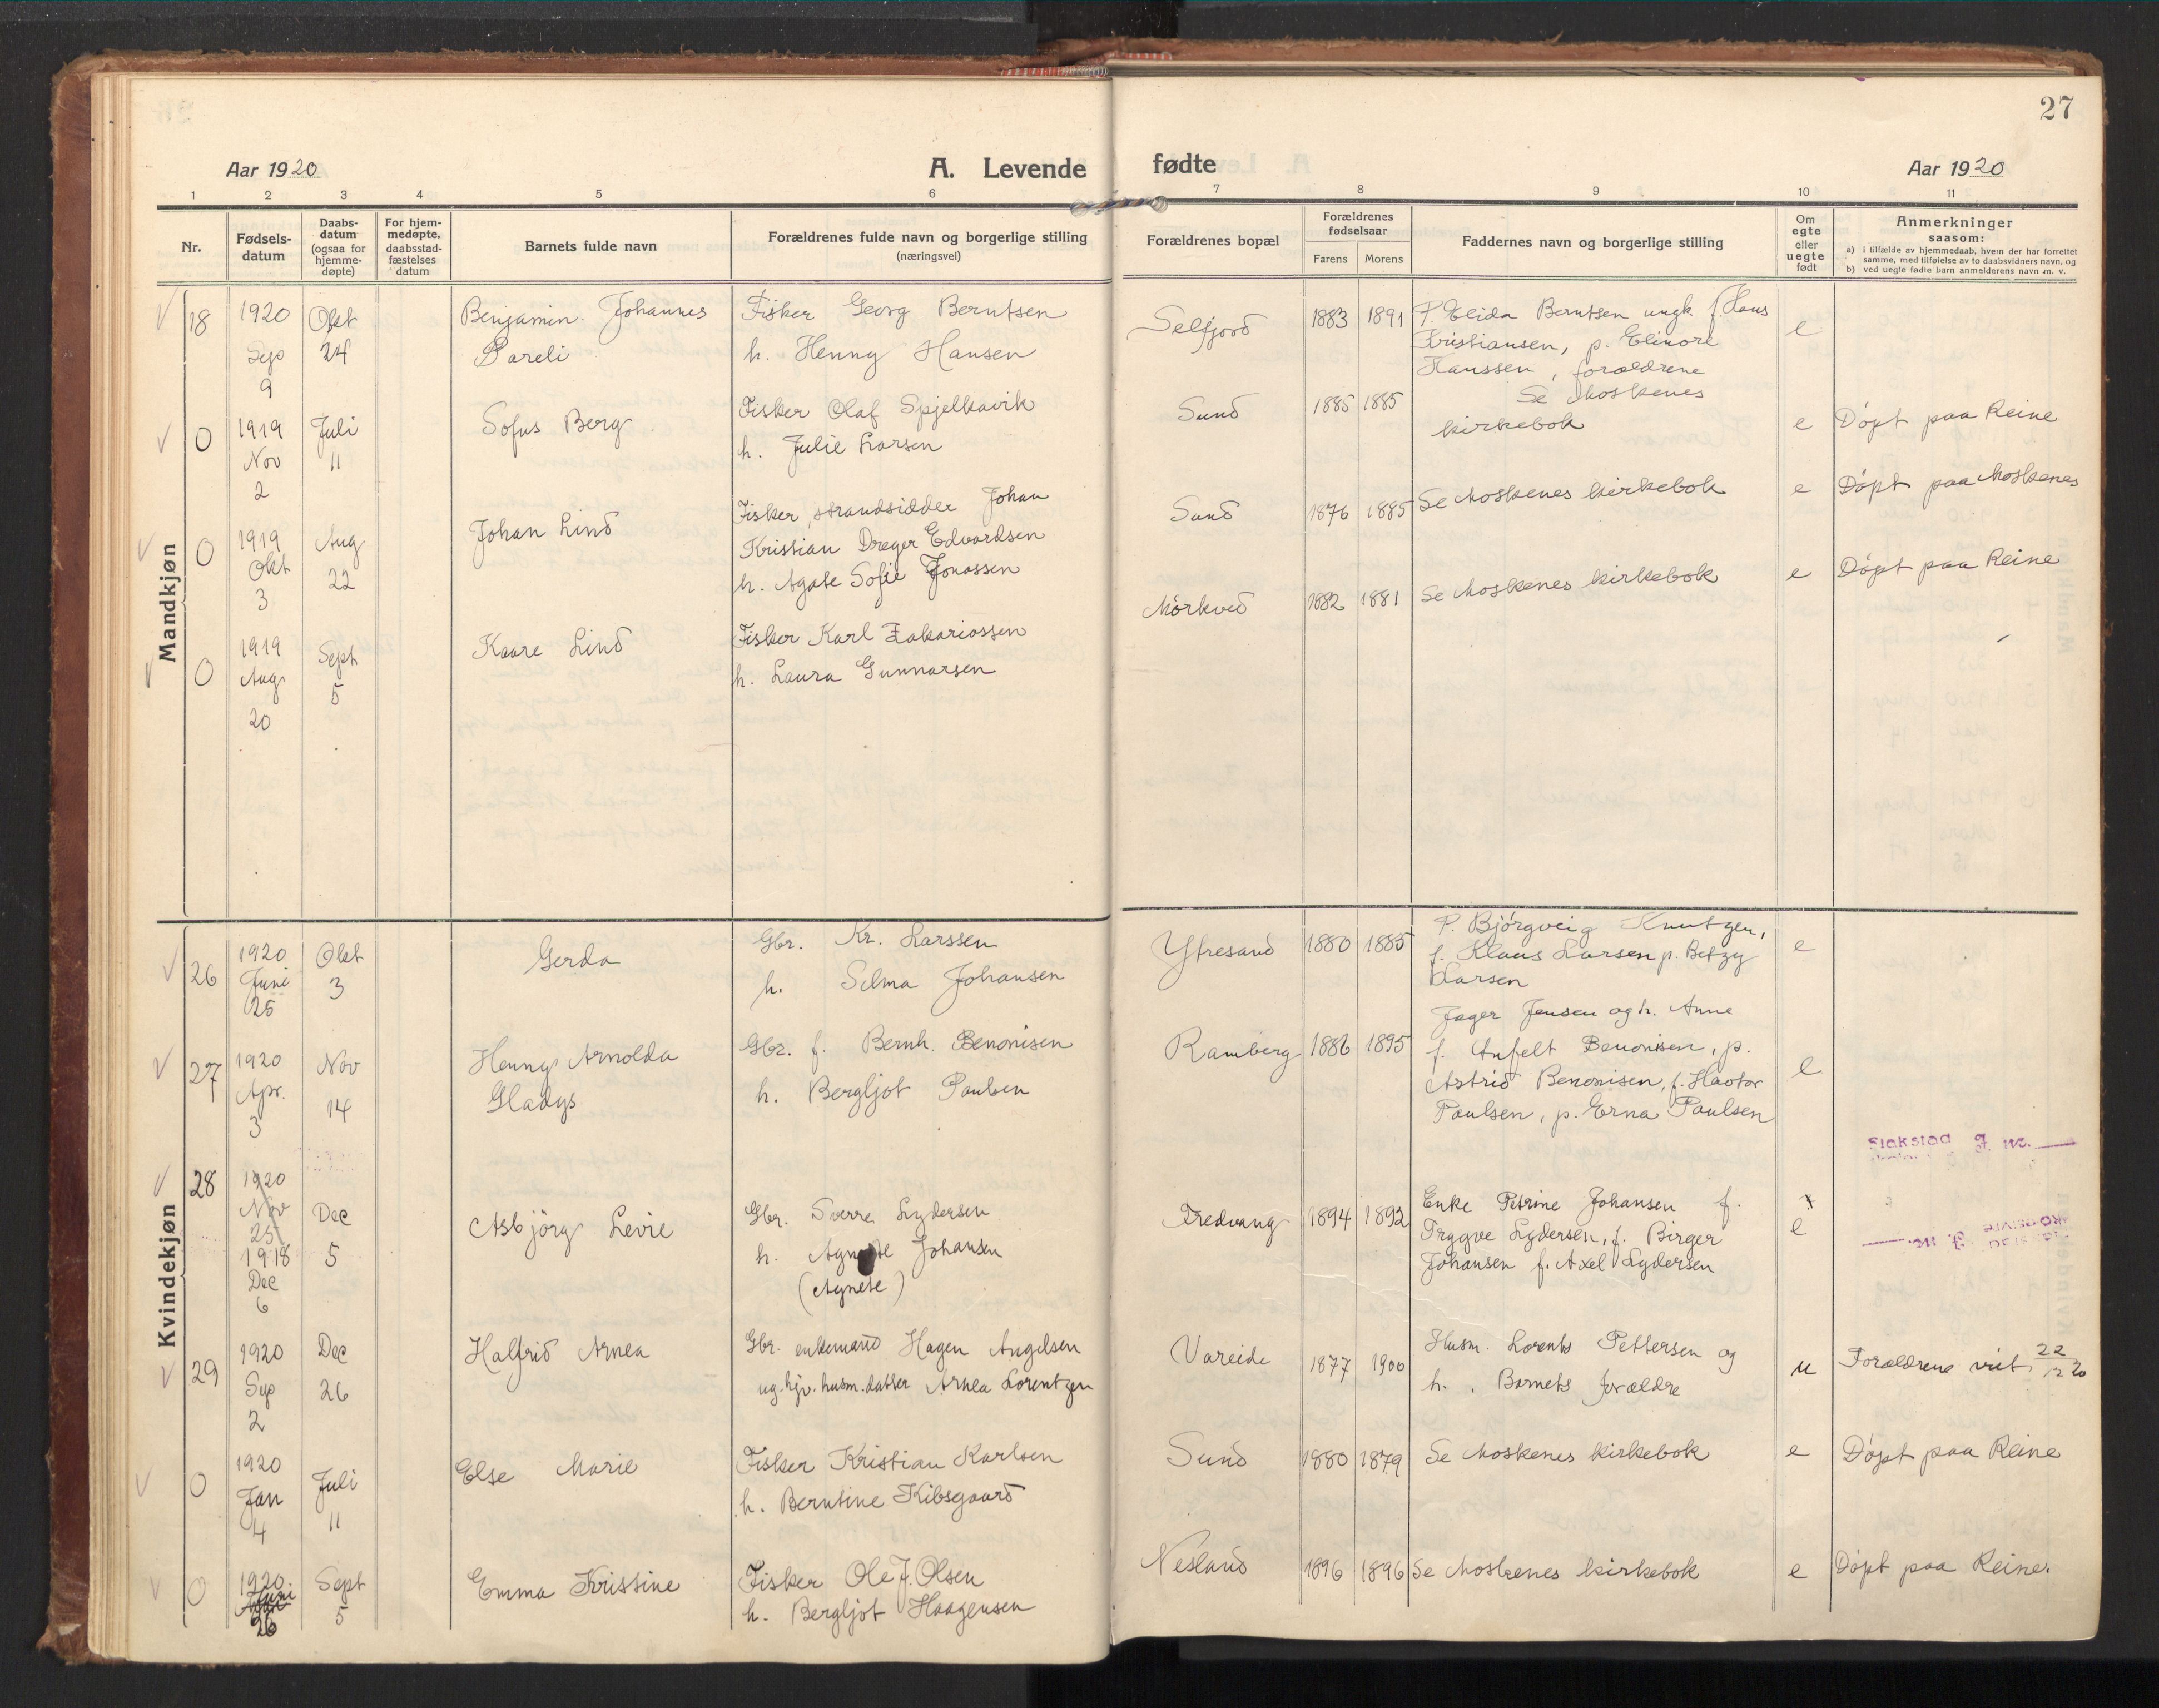 27
Aar 1920
A. Levende fødte
Aar 1920
1 2 3 4 5 6 7 8 9 10 11
Nr.
Fødsels-
datum
Daabs-
datum
(ogsaa for
hjemme-
døpte)
For hjem-
medøpte,
daabsstad-
fæstelses
datum
Barnets fulde navn
Forældrenes fulde navn og borgerlige stilling
(næringsvei)
Forældrenes bopæl
Forældrenes
fødselsaar
Farens Morens
Faddernes navn og borgerlige stilling
Om
egte
eller
uegte
født
Anmerkninger
saasom:
a) i tilfælde av hjemmedaab, hvem der har forrettet
samme, med tilføielse av to daabsvidners navn, og
b) ved uegte fødte barn anmelderens navn m. v.
Mandkjøn
18
1920
Sep
9
Okt
24
Benjamin Johannes
Pareli
Fisker Georg Berntsen
h. Henny Hansen
Selfjord
1883 1891
P. Elida Berntsen ungk. f. Hans
Kristiansen, p. Elinore
Hanssen, forældrene
e
0
1919
Nov
2
Juli
11
Sofus Berg
Fisker Olaf Spjelkavik
h. Julie Larsen
Sund
1885 1885
Se Moskenes
kirkebok
e
Døpt paa Reine
0
1919
Okt
3
Aug
22
Johan Lind
Fisker, strandsidder Johan
Kristian Dreyer Edvardsen
h. Agate Sofie Jonassen
Sund
1876 1885
Se Moskenes kirkebok
e
Døpt paa Moskenes
0
1919
Aug
20
Sept
5
Kaare Lind
Fisker Karl Zakariassen
h. Laura Gunnarsen
Mørkved
1882 1881
Se Moskenes kirkebok
e
Døpt paa Reine
Kvindekjøn
26
1920
Juni
25
Okt
3
Gerda
Gbr. Kr. Larssen
h. Selma Johansen
Ytresand
1880 1885
P. Bjørgveig Knutzen,
f. Klaus Larsen p. Betzy
Larsen
e
27
1920
Apr.
3
Nov
14
Henny Arnolda
Gladys
Gbr. f. Bernh. Benonisen
h. Bergljot Paulsen
Ramberg
1886 1895
Jager Jensen og h. Anne
f. Anfelt Benonisen, p.
Astrid Benonisen, f. Haakon
Paulsen, p. Erna Paulsen
e
28
1920
Nov
25
1918
Dec
6
Dec
5
Asbjørg Levie
Gbr. Sverre Lydersen
h. Agnete Johansen
(Agnete)
Fredvang
1894 1892
Enke Petrine Johansen f.
Trygve Lydersen, f. Birger
Johansen f. Axel Lydersen
e
Flakstad
29
1920
Sep
2
Dec
26
Halfrid Arnea
Gbr. enkemand Hagen Angelsen
ug. hjv. husm. datter Arnea Lorentzen
Vareide
1877 1900
Husm. Lorents Pettersen og
h. Barnets forældre
u
Forældrene viet 22/12 20
0
1920
Jan
4
Juli
11
Else Marie
Fisker Kristian Karlsen
h. Berntine Kibsgaard
Sund
1880 1879
Se Moskenes kirkebok
e
Døpt paa Reine
0
1920
Juni
26
Sept
5
Emma Kristine
Fisker Ole J. Olsen
h. Bergljot Haagensen
Nesland
1896 1896
Se Moskenes kirkebok
e
Døpt paa Reine.